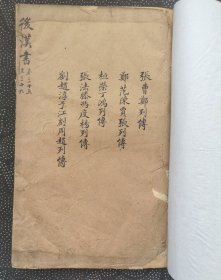 張曹鄭列傳
鄭范陳賈張列傳
桓榮丁鴻列傳
張法滕馮度楊列傳
劉趙淳于江劉周趙列傳
後漢書
卷三十五
至三十九